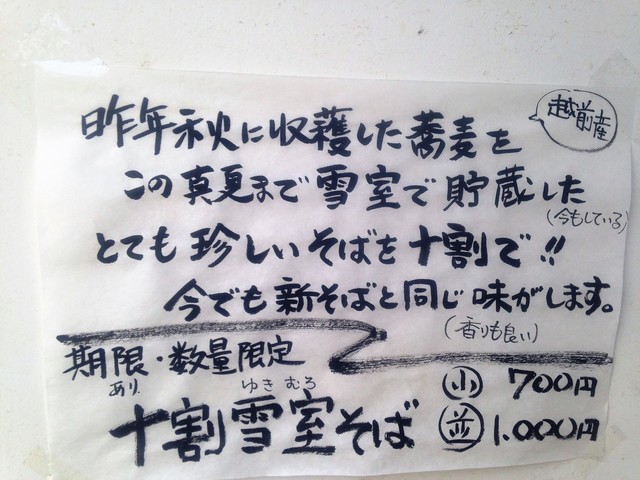 越前産
昨年秋に収穫した蕎麦を
この真夏まで雪室で貯蔵した
(今もしている)
とても珍しいそばを十割で!!
今でも新そばと同じ味がします。
(香りも良い)
期限・数量限定
あり
ゆきむろ
十割雪室そば
小 700円
並 1.000円